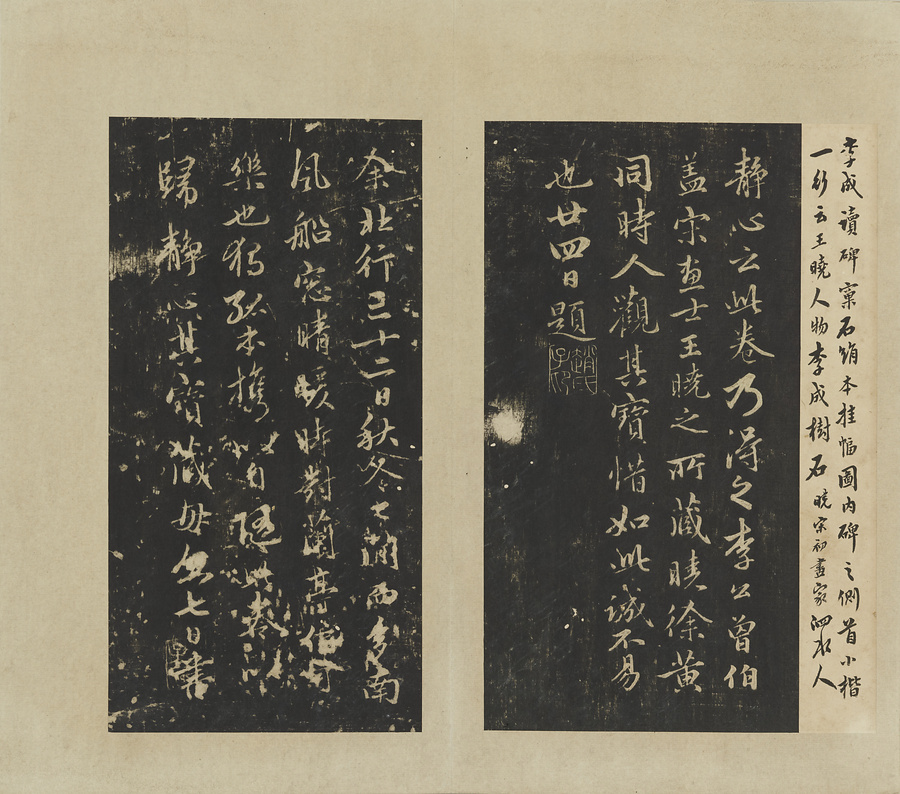 李成讀碑窠石絹本挂幅圖內碑之側首小楷
一行云王曉人物李成樹石曉宋初畫家泗水人
靜心云此卷乃得之李公曾伯
盖宋画士王曉之所藏曉徐黃
同時人觀其寶惜如此誠不易
也廿四日題
趙氏子昂
余北行三十二日秋冬之間而多南
風船窓晴暖時對蘭亭佳
樂也獨孤本攜以自隨此卷以
歸靜心其寶藏毋忽七日書